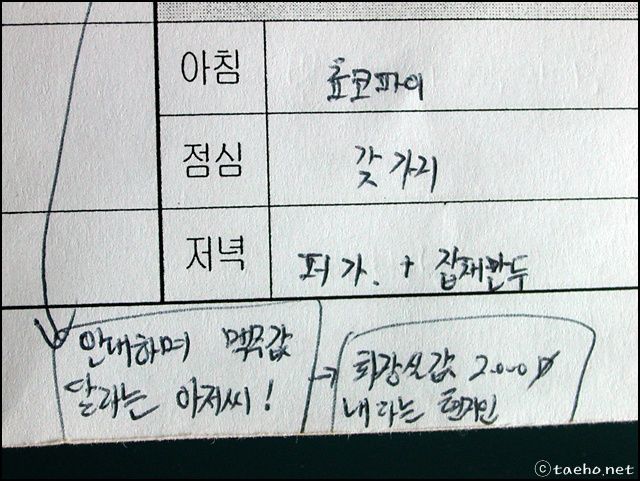 아침 쵸코파이
점심 갖가리
저녁 퍼가. + 잡채만두
안내하며 맥주값
달라는 아저씨!
→ 화장실값 2.000₫
내라는 현지인
ⓒtaeho.net